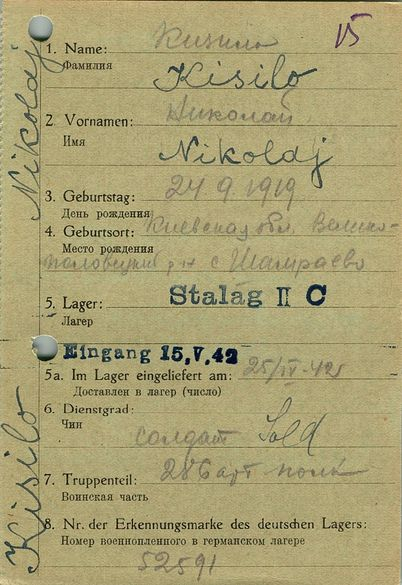 15
1. Name: Кизило
Фамилия
Kisilo
2. Vornamen: Николай
Имя
Nikolaj
3. Geburtstag: 24 9. 1919
День рождения
4. Geburtsort: Киевская обл.
Место рождения
р-н с Шамраево
5. Lager: Stalag II C
Лагер
Eingang 15.V.42
5a. Im Lager eingeliefert am: 25/IV-42
Доставлен в лагер (число)
6. Dienstgrad:
Чин
солдат Sold
7. Truppenteil: 286 арт полк
Воинская часть
8. Nr. der Erkennungsmarke des deutschen Lagers:
Номер военнопленного в германском лагере
52591
Kisilo Nikolaj